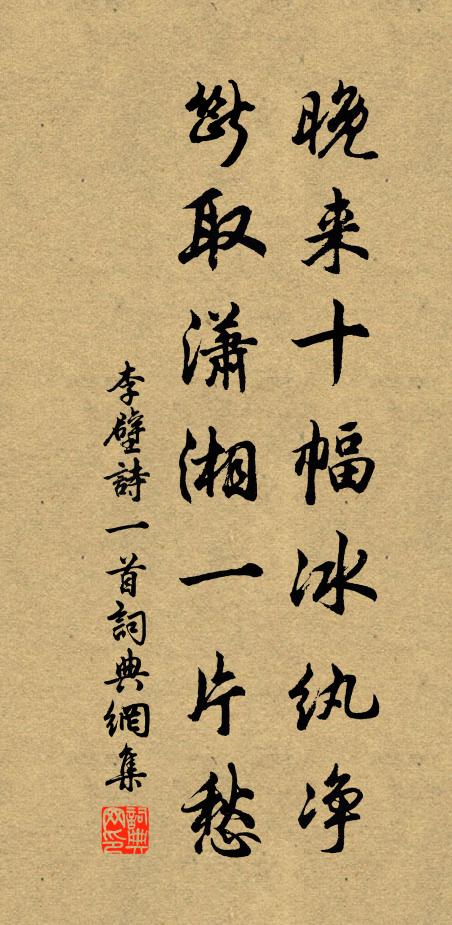 晚来十幅冰纨净
断取瀟湘一片愁
李壁詩一首詞典網集
詞典网印